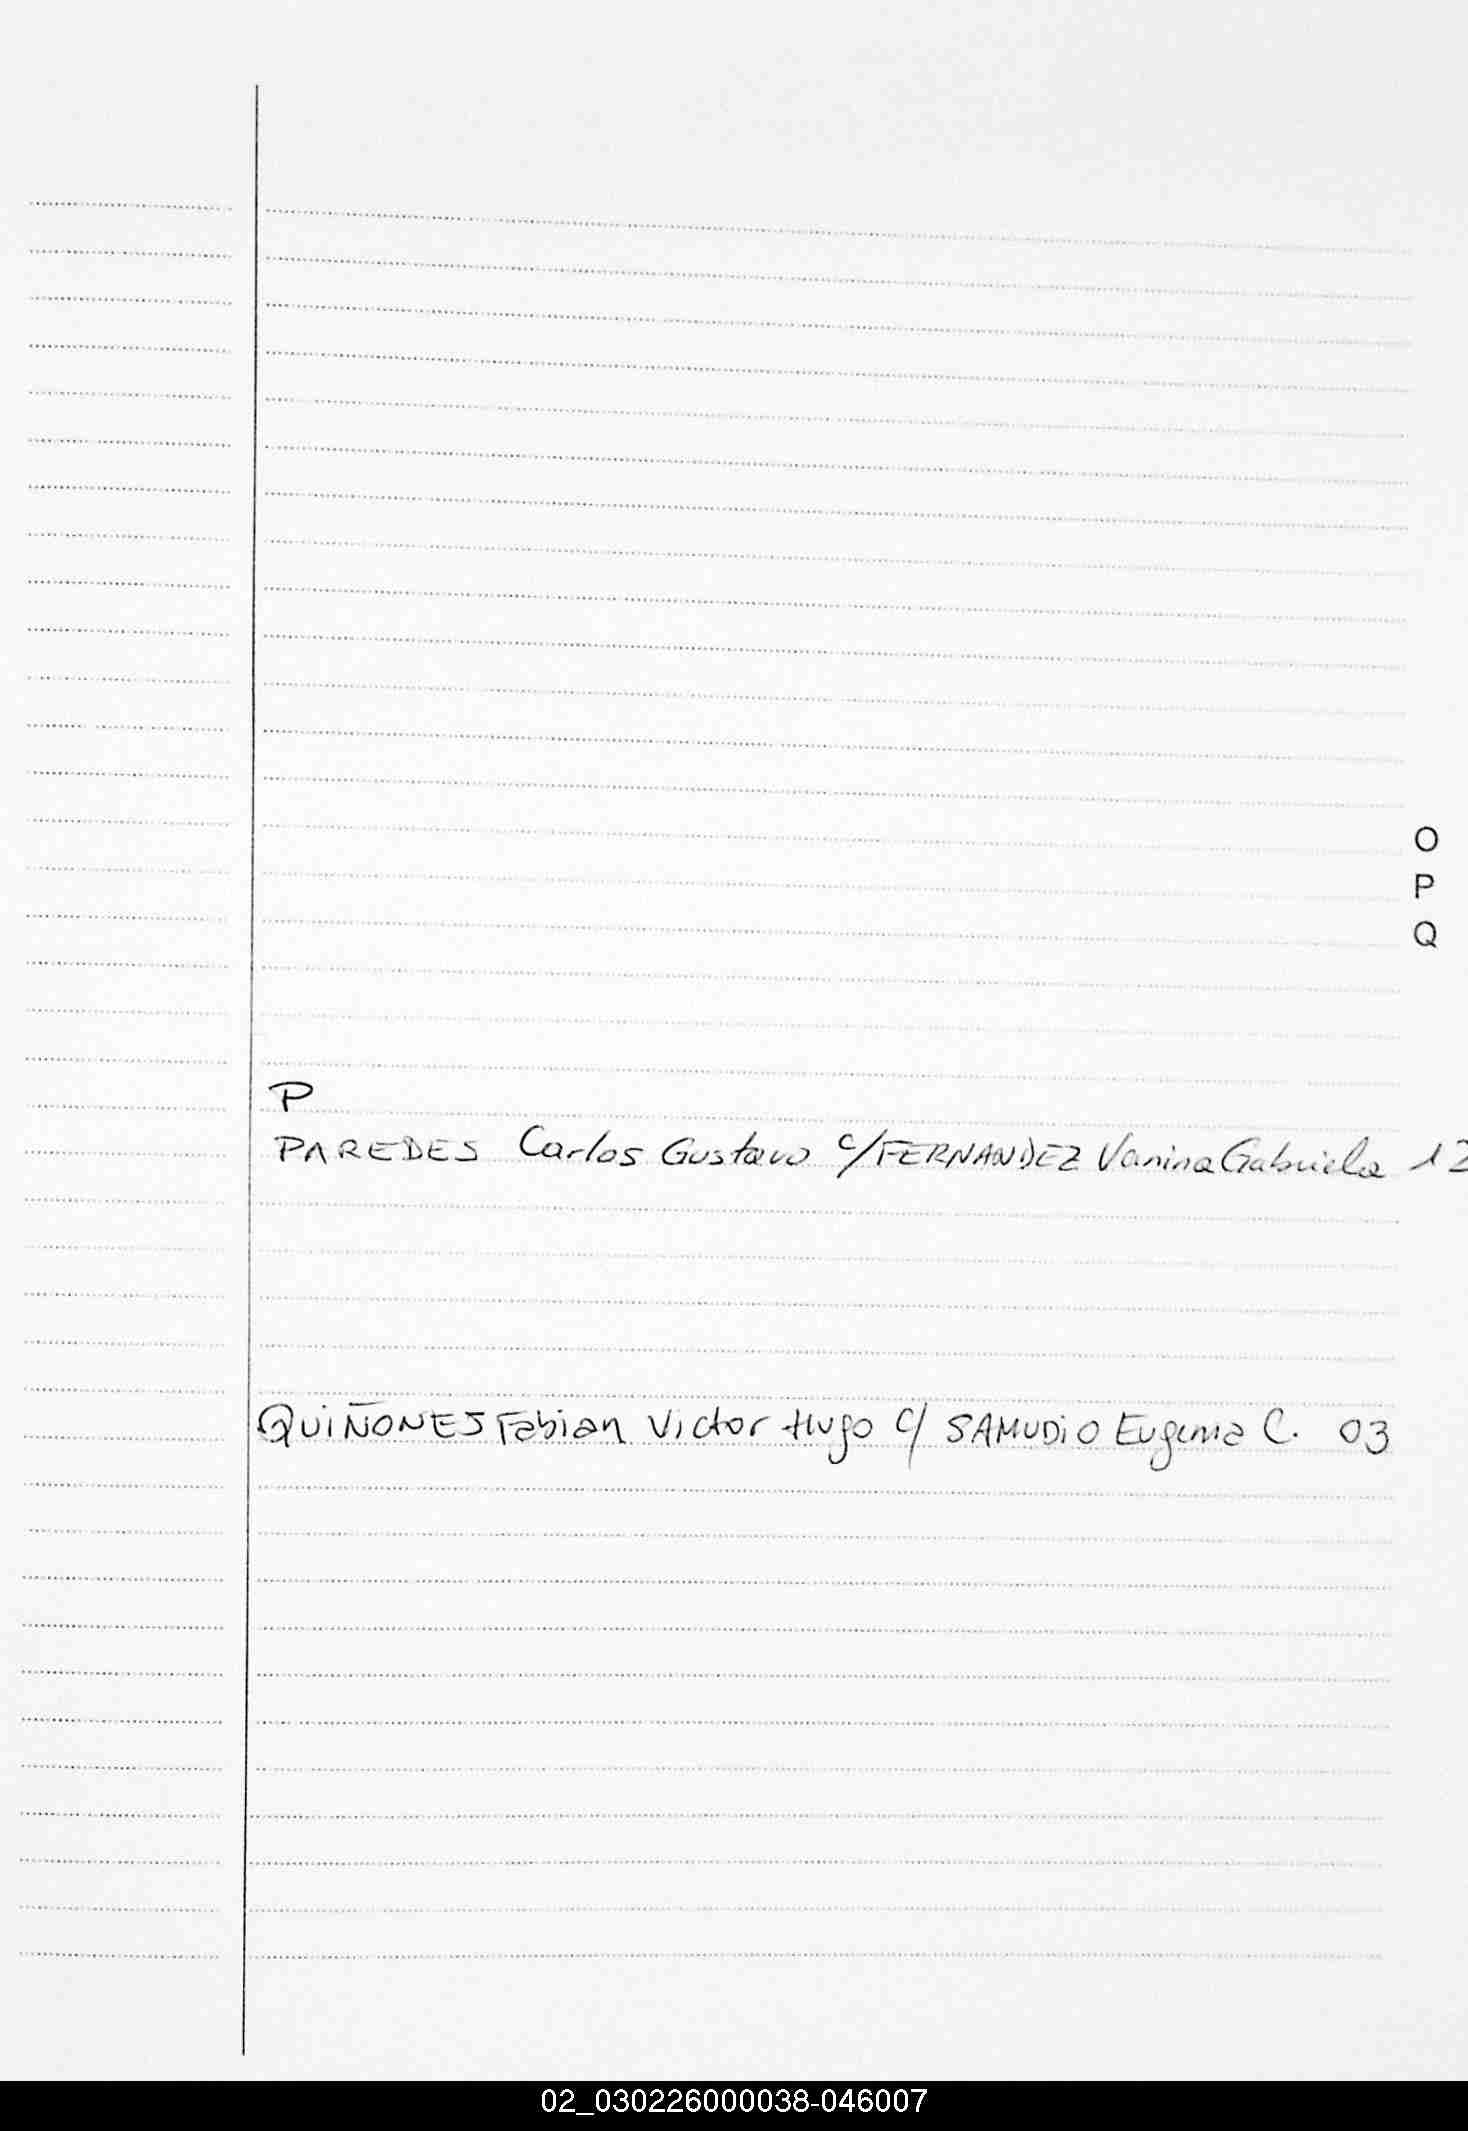 O
P
Q
P
PAREDES Carlos Gustavo c/FERNANDEZ Vanina Gabriela 12
QUIÑONES Fabian Victor Hugo c/ SAMUDiO Eugenia C. 03
02_030226000038-046007